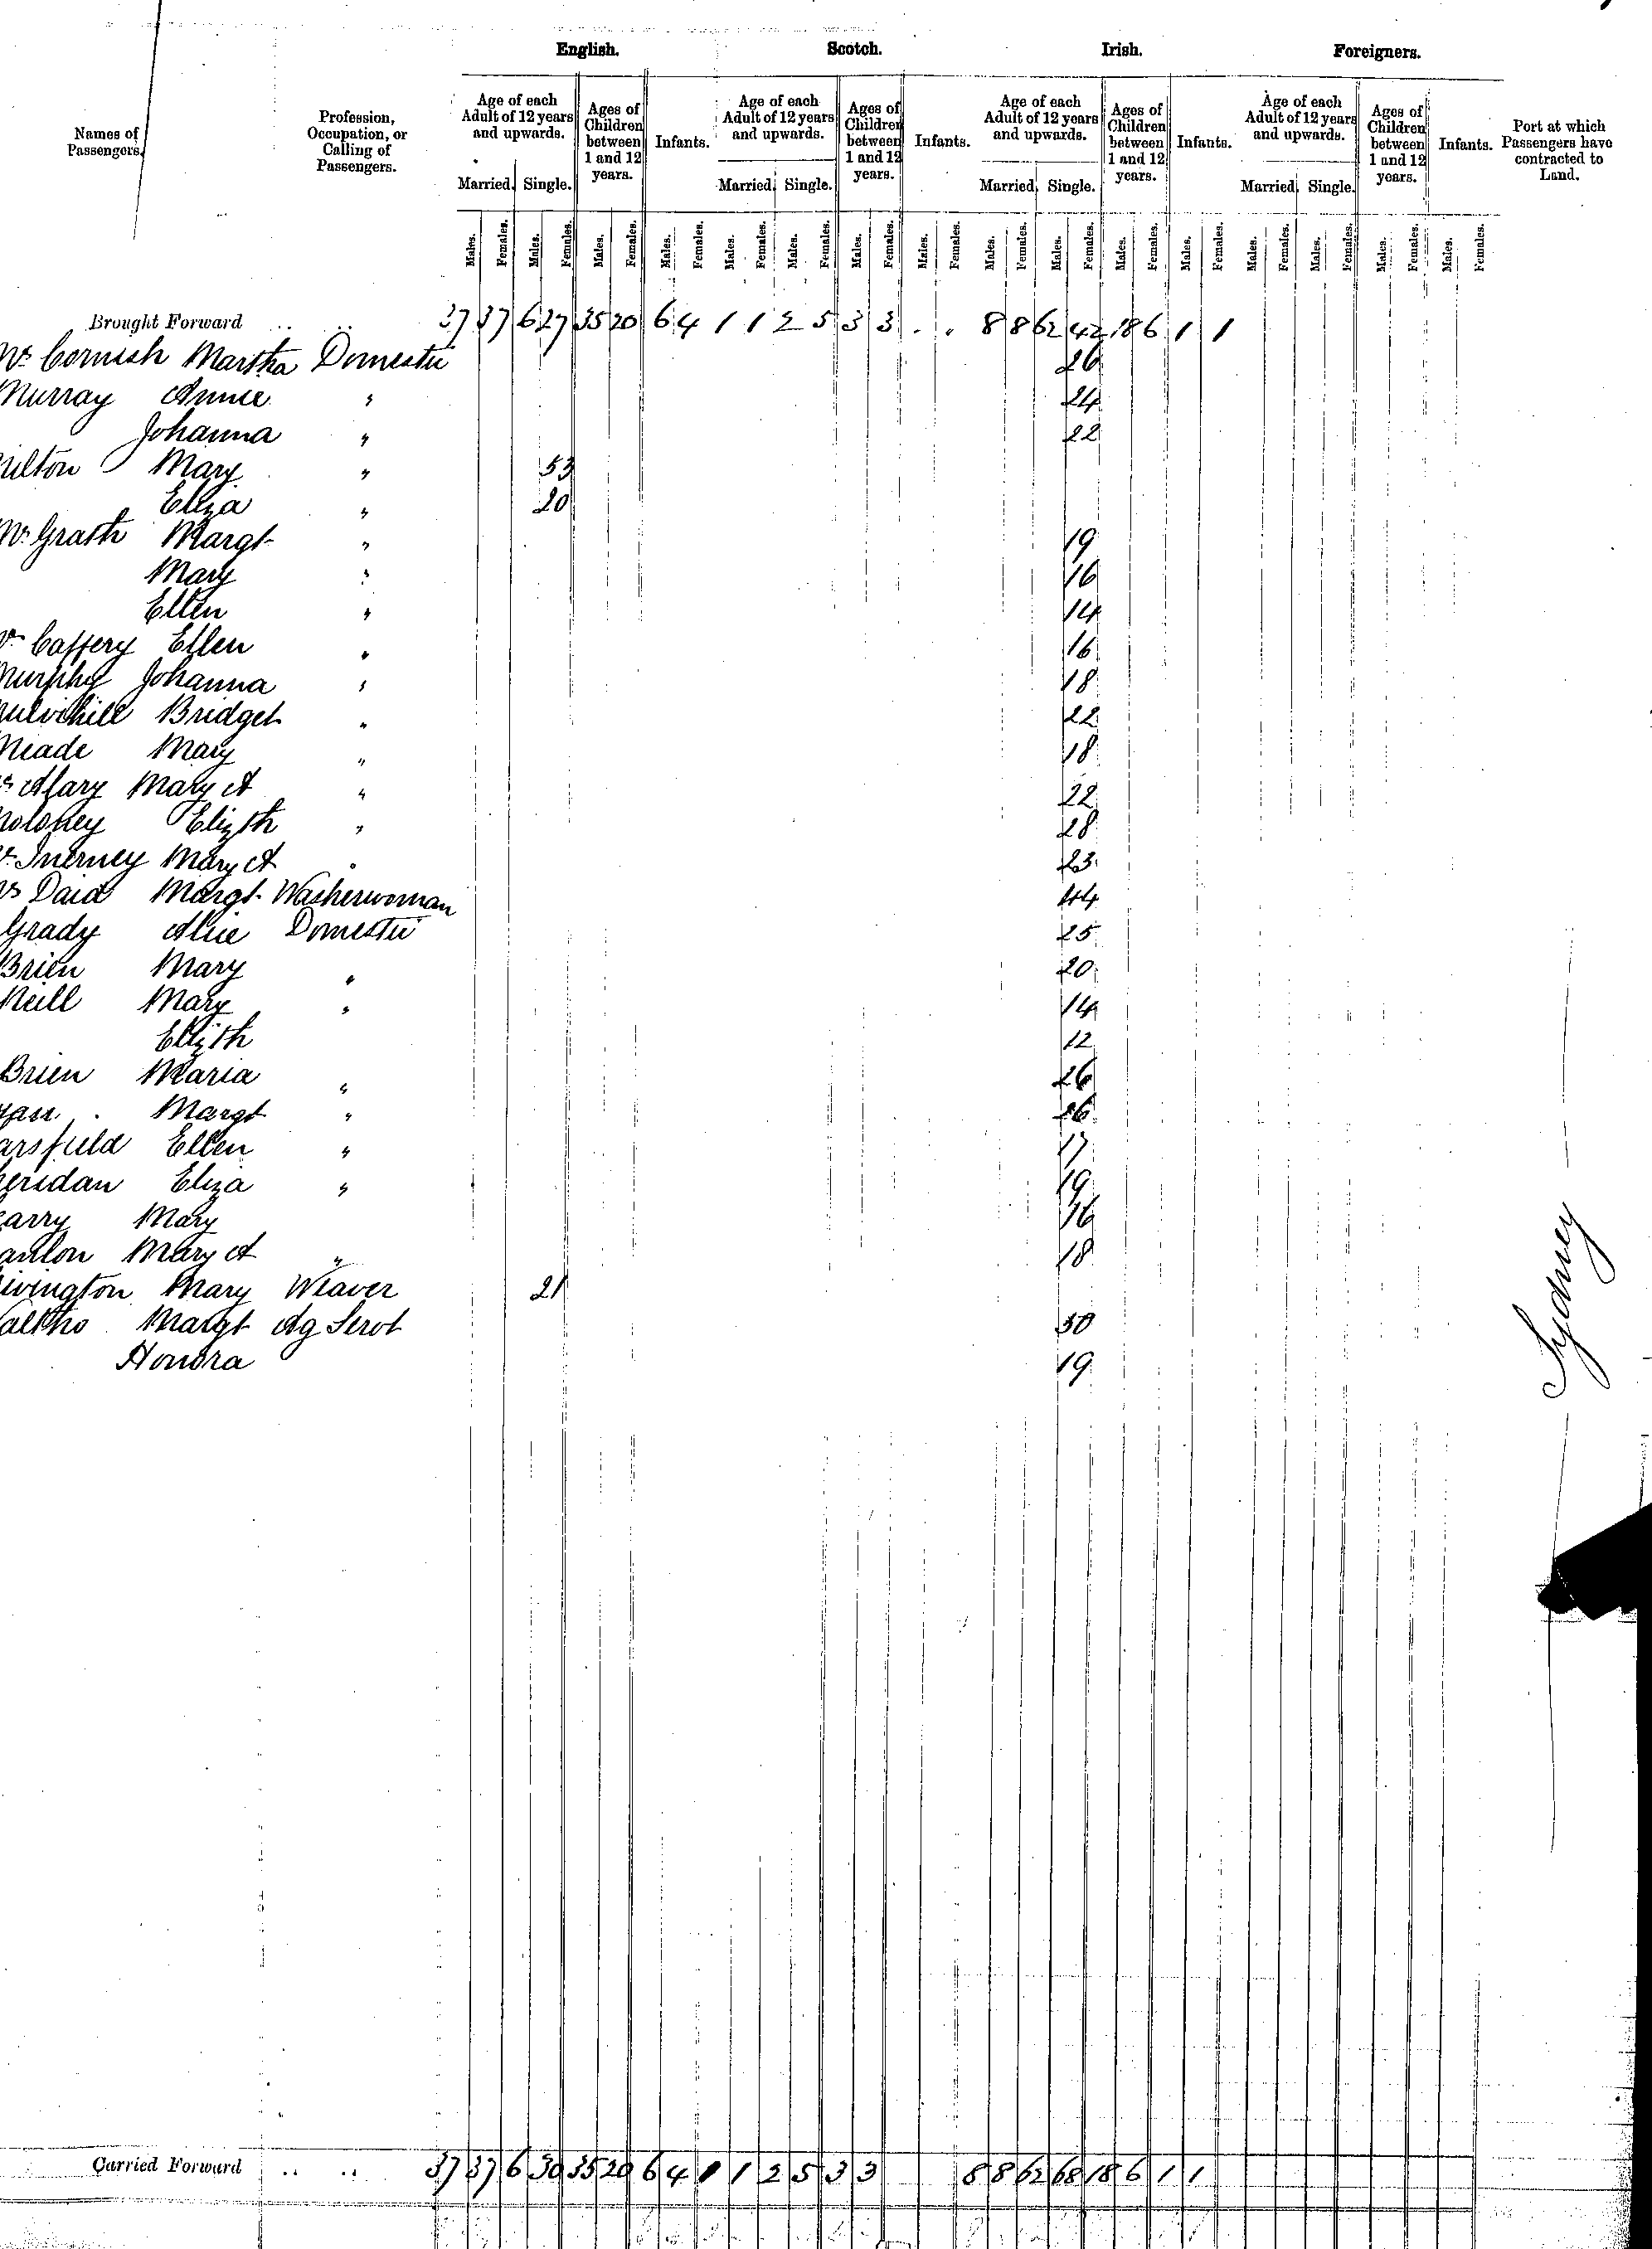 English. Scotch. Irish. Foreigners.
Names of Passengers. Profession, Occupation, or Calling of Passengers. Age of each Adult of 12 years and upwards. Ages of Children between 1 and 12 years. Infants. Age of each Adult of 12 years and upwards. Ages of Children between 1 and 12 years. Infants. Age of each Adult of 12 years and upwards. Ages of Children between 1 and 12 years. Infants. Age of each Adult of 12 years and upwards. Ages of Children between 1 and 12 years. Infants. Port at which Passengers have contracted to Land.
Married. Single. Married. Single. Married. Single. Married. Single.
Males. Females. Males. Females. Males. Females. Males. Females. Males. Females. Males. Females. Males. Females. Males. Females. Males. Females. Males. Females. Males. Females. Males. Females. Males. Females. Males. Females. Males. Females. Males. Females.
Brought Forward .. .. 37 37 6 27 35 20 6 4 1 1 2 5 3 3 . . 8 8 62 42 18 6 1 1
Mc Cornish Martha Domestic 26
Murray Annie " 24
Johanna " 22
ulton Mary " 53
Eliza " 20
Mc Grath Margt " 19
Mary " 16
Ellen " 14
Caffery Ellen " 16
Murphy Johanna " 18
ulvihill Bridget " 22
Meade Mary " 18
Alary Mary A " 22
oloney Elizth " 28
Inerney Mary A " 23
Daid Margt Washerwoman 44
Grady Alice Domestic 25
Brien Mary " 20
Neill Mary " 14
Elizth 12
Brien Maria " 26
yan Margt " 26
arsfield Ellen " 17
eridan Eliza " 19
arry Mary 16
anlon Mary A " 18
ivington Mary Weaver 21
altho Margt Ag Servt 50
Honora 19
Sydney
Carried Forward .. .. 37 37 6 30 35 20 6 4 1 1 2 5 3 3 8 8 62 68 18 6 1 1